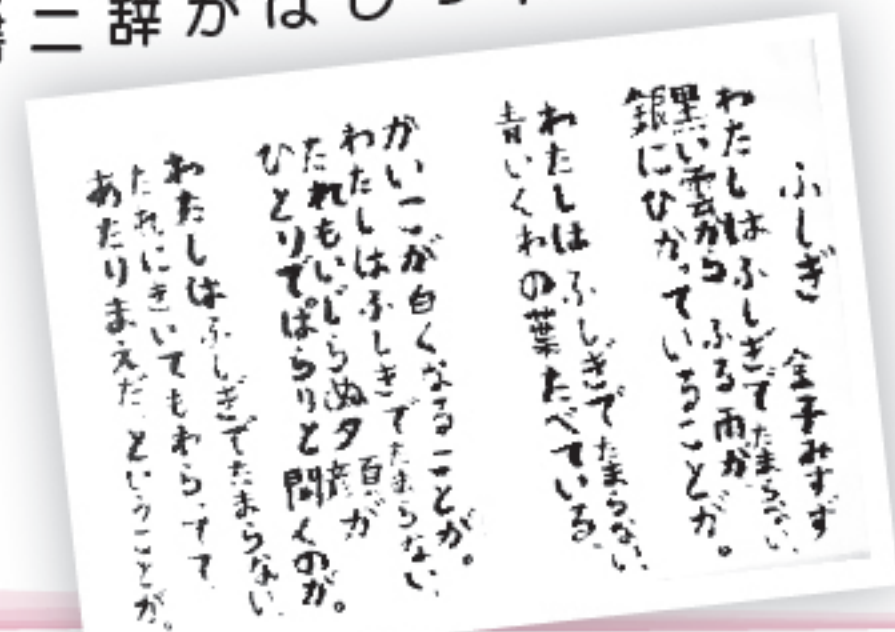 二辞がはじ
ふしぎ 金子みすず
わたしはふしぎでたまらない、
黒い雲からふる雨が、
銀にひかっていることが。
わたしはふしぎでたまらない、
青いくわの葉たべている、
かいこが白くなることが。
わたしはふしぎでたまらない、
たれもいじらぬ夕顔が
ひとりでぱらりと開くのが。
わたしはふしぎでたまらない、
たれにきいてもわらってて
あたりまえだ、ということが。